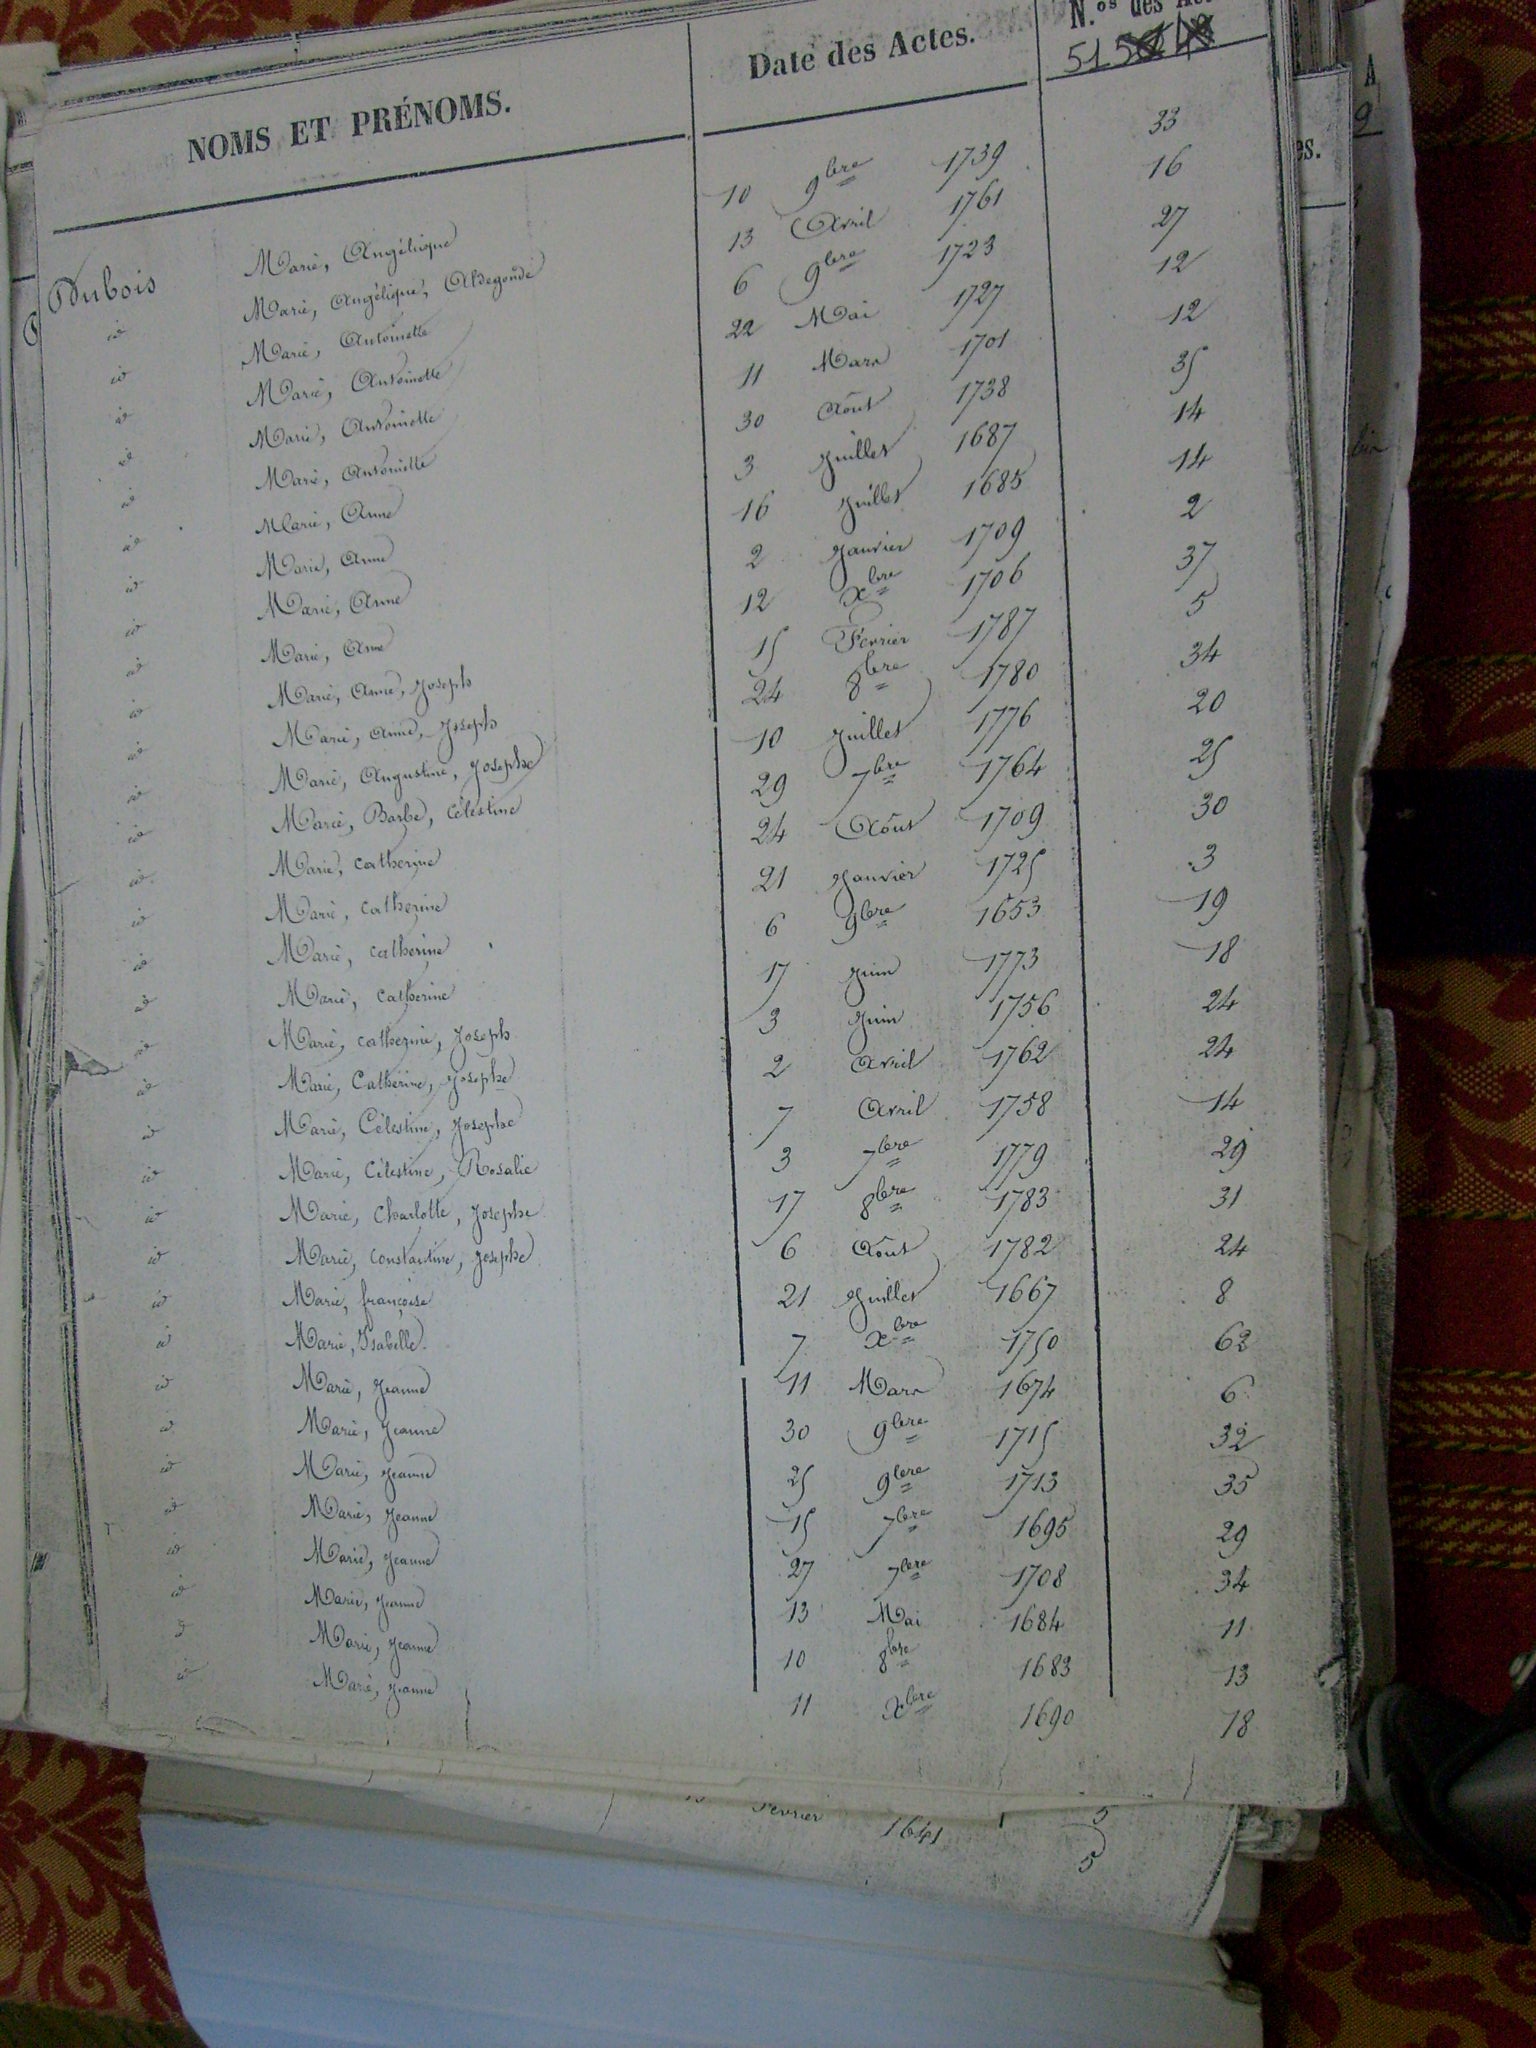 NOMS ET PRÉNOMS. Date des Actes. N.os des
515
Dubois Marie, Angélique 10 9bre 1739 33
id Marie, Angélique, Aldegonde 13 Avril 1761 16
id Marie, Antoinette 6 9bre 1723 27
id Marie, Antoinette 22 Mai 1727 12
id Marie, Antoinette 11 Mars 1701 12
id Marie, Antoinette 30 Août 1738 35
id Marie, Anne 3 Juillet 1687 14
id Marie, Anne 16 Juillet 1685 14
id Marie, Anne 2 Janvier 1709 2
id Marie, Anne 12 Xbre 1706 37
id Marie, Anne, Joseph 15 Fevrier 1787 5
id Marie, Anne, Joseph 24 8bre 1780 34
id Marie, Augustine, Josephe 10 Juillet 1776 20
id Marie, Barbe, Célestine 29 7bre 1764 25
id Marie, catherine 24 Août 1709 30
id Marie, catherine 21 Janvier 1725 3
id Marie, catherine 6 9bre 1653 19
id Marie, catherine 17 Juin 1773 18
id Marie, catherine, Joseph 3 Juin 1756 24
id Marie, Catherine, Josephe 2 Avril 1762 24
id Marie, Célestine, Josephe 7 Avril 1758 14
id Marie, Célestine, Rosalie 3 7bre 1779 29
id Marie, Charlotte, Josephe 17 8bre 1783 31
id Marie, constantine, Josephe 6 Août 1782 24
id Marie, françoise 21 Juillet 1667 8
id Marie, Isabelle 7 Xbre 1750 62
id Marie, Jeanne 11 Mars 1674 6
id Marie, Jeanne 30 9bre 1715 32
id Marie, Jeanne 25 9bre 1713 35
id Marie, Jeanne 15 7bre 1695 29
id Marie, Jeanne 27 7bre 1708 34
id Marie, Jeanne 13 Mai 1684 11
id Marie, Jeanne 10 8bre 1683 13
id Marie, Jeanne 11 Xbre 1690 18
Fevrier 1641 5
5